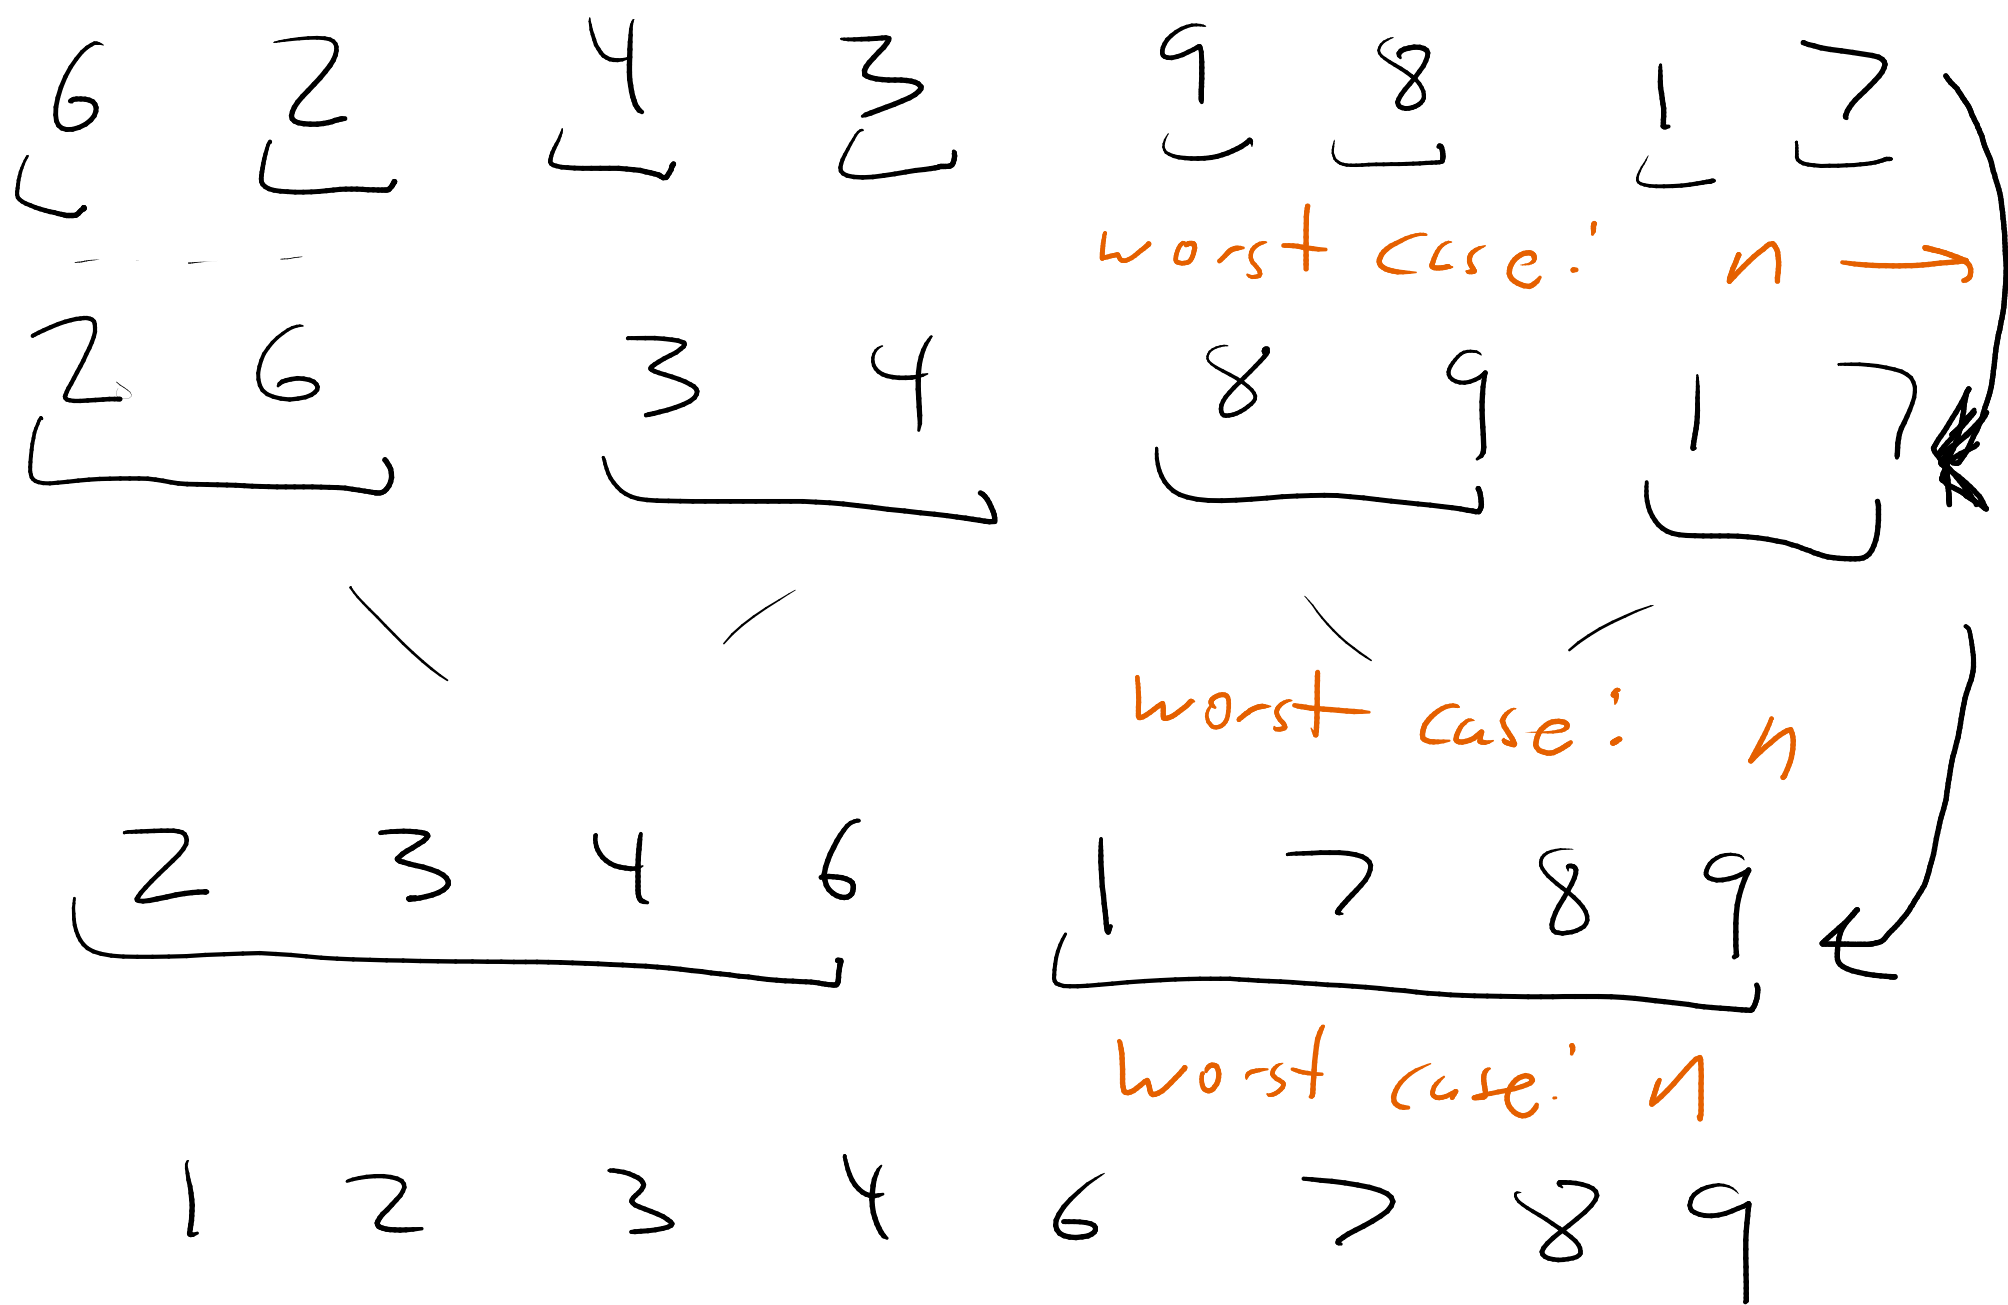 6 2 4 3 9 8 1 7
worst case: n →
2 6 3 4 8 9 1 7
worst case: n
2 3 4 6 1 7 8 9
worst case: n
1 2 3 4 6 7 8 9